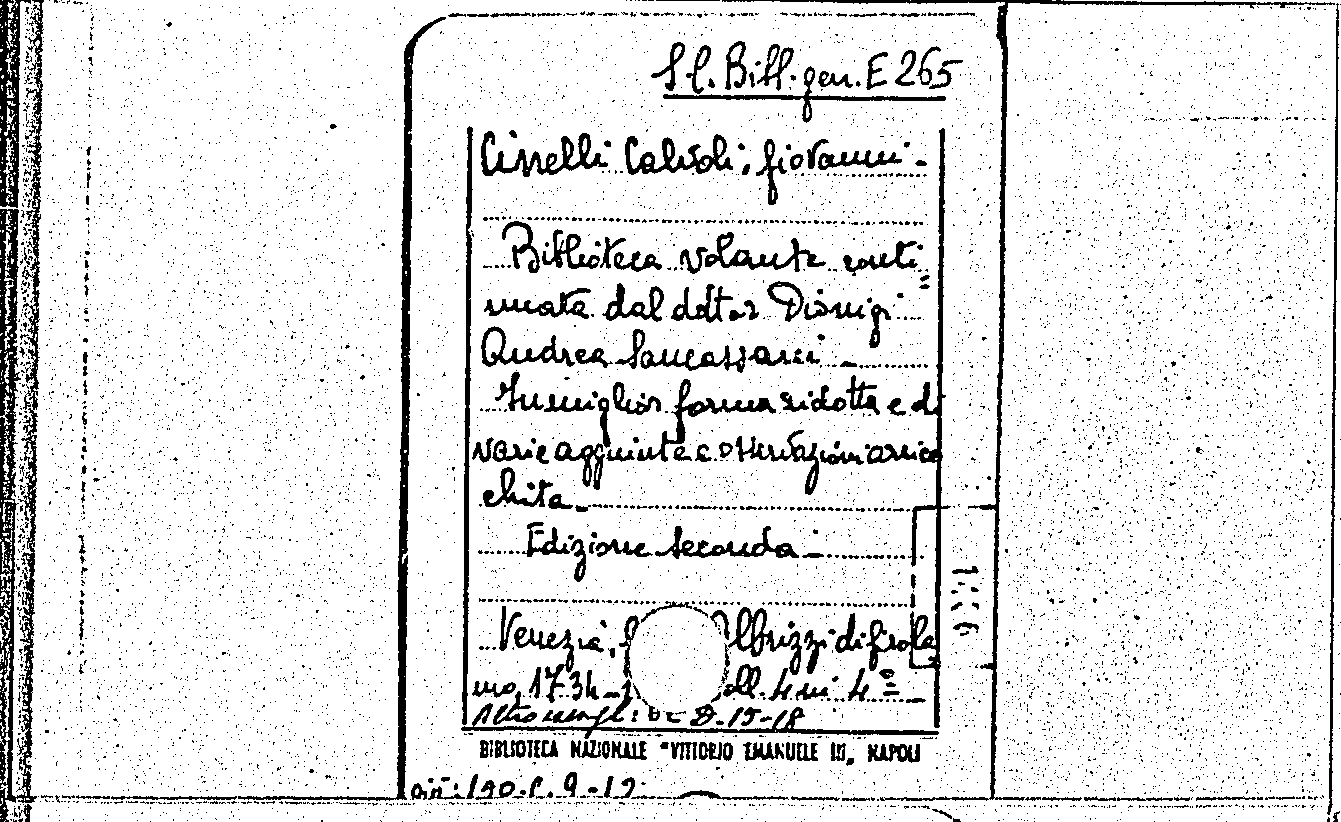 S.l. Bibl. gen. E 265
Cinelli Calvoli, Giovanni.
Biblioteca volante conti=
nuata dal dottor Dionigi
Andrea Sancassani.
In miglior forma ridotta e di
varie aggiunte e osservazioni arric
chita.
Edizione Seconda.
Venezia, Albrizzi di Girola
mo, 1734- voll. 4 in 4º
Altro esempl: D-15-18
BIBLIOTECA NAZIONALE "VITTORIO EMANUELE III„ NAPOLI